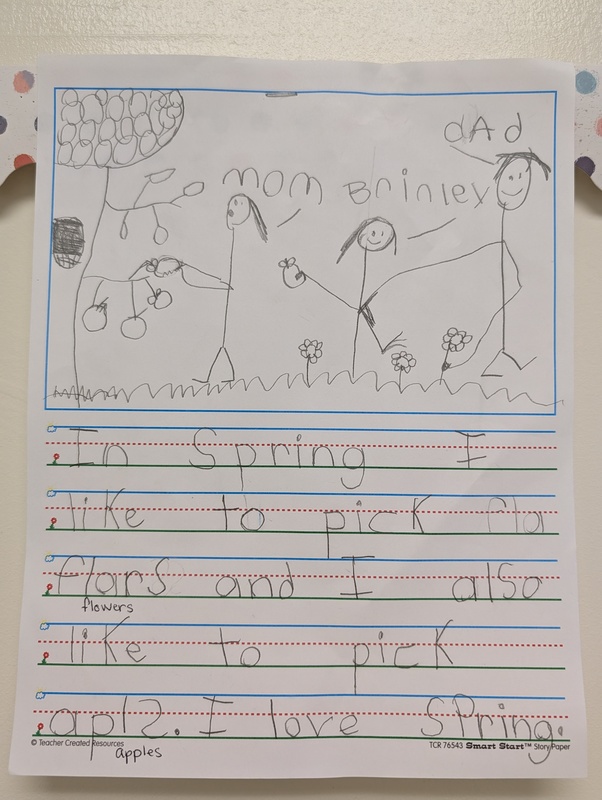 dAd
mom Brinley
In Spring I
like to pick fla
flars and I also
flowers
like to pick
apls. I love SPring.
© Teacher Created Resources
apples
TCR 76543 Smart Start™ Story Paper